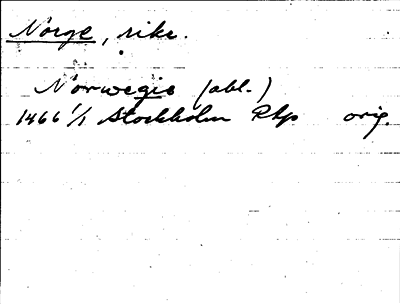 Norge, rike.
Norwegie (abl.)
1466 1/1 Stockholm Rkp orig.